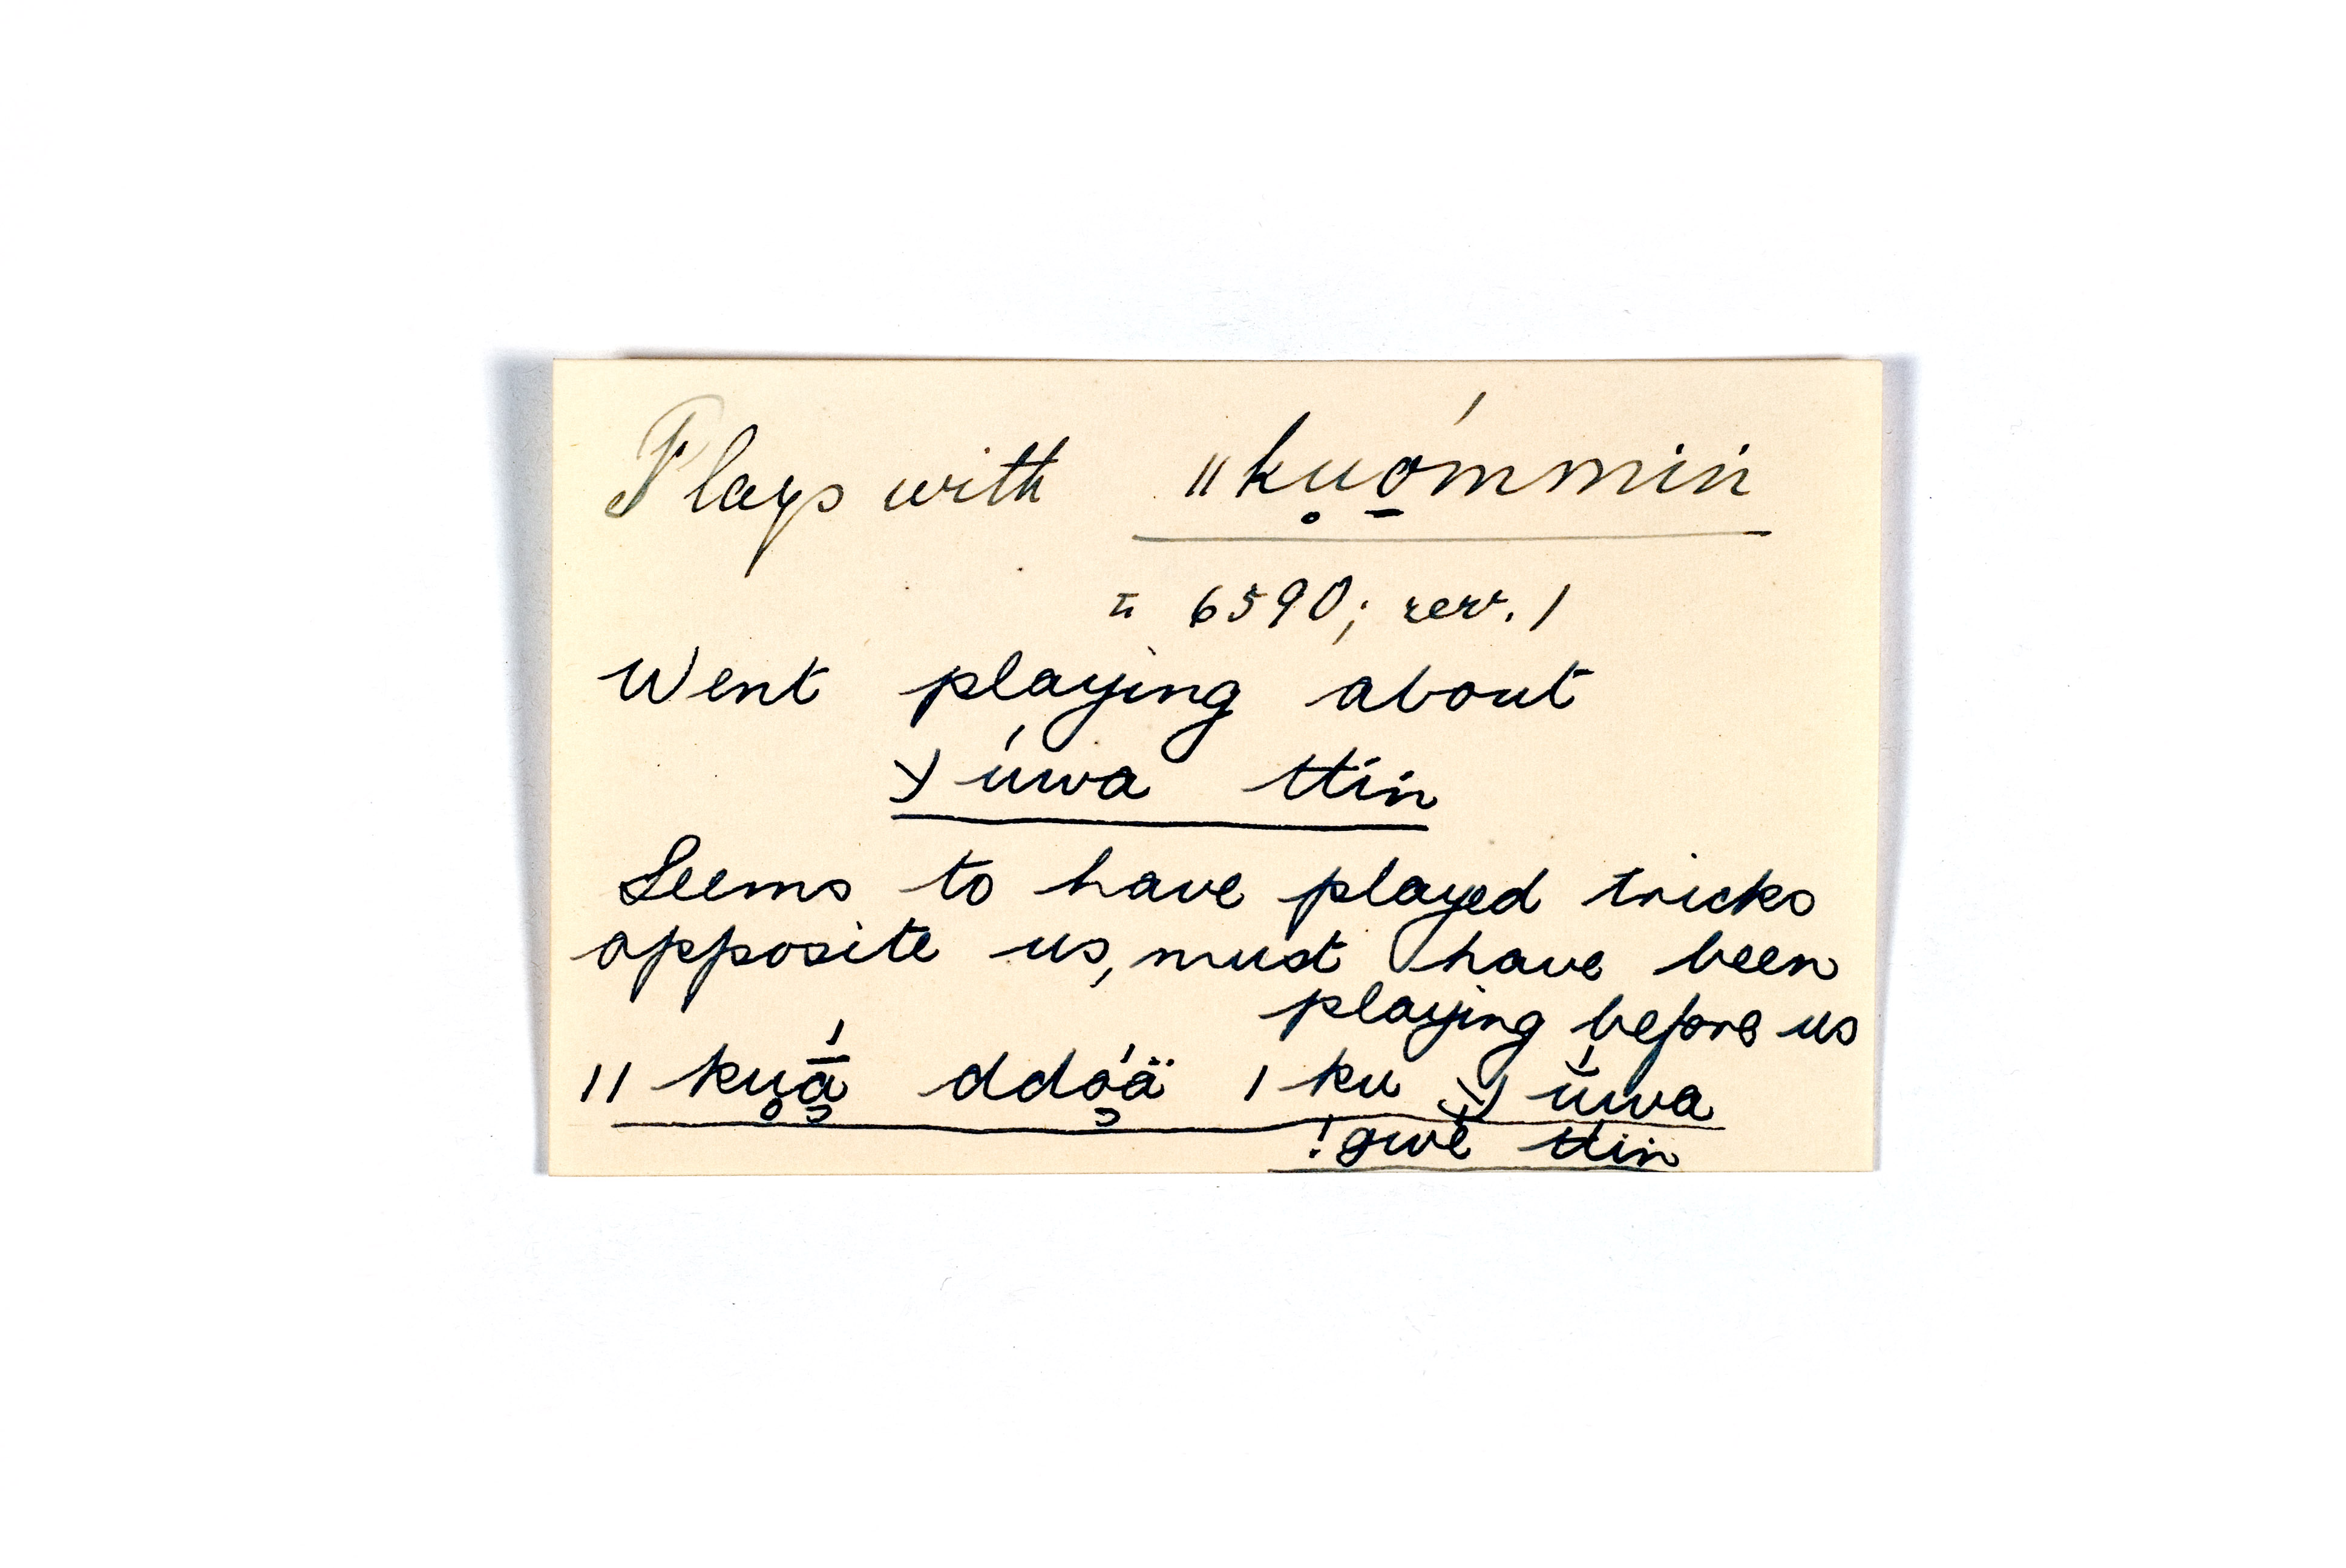 Plays with ǁku̥ó̱mmin
= 6590; rev. 1
Went playing about
ʘ úwa ttin
Seems to have played tricks
opposite us, must have been
playing before us
ǁ ku̥ā̜́ ddó̜ä ǀ ku úwa
!gwĕ ttin